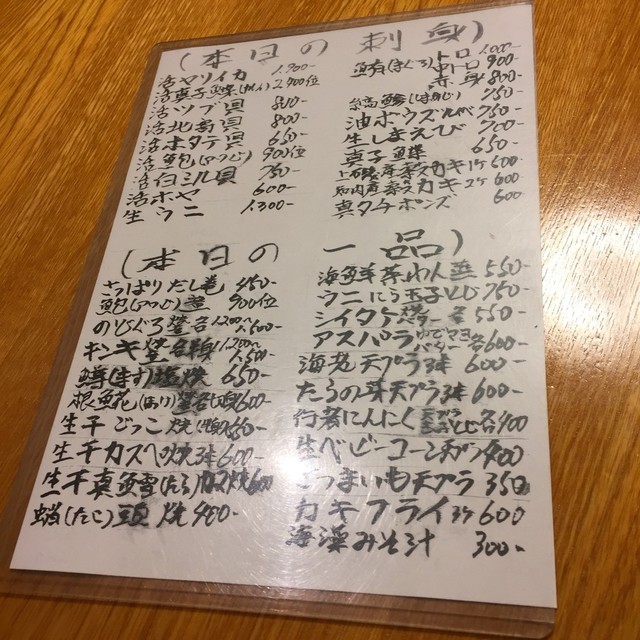 (本日の刺身)
活ヤリイカ 1,900-
活真子鰈(かれい) 2,900位
活ツブ貝 800-
活北寄貝 800-
活ホタテ貝 650-
活鮑(あわび) 900位
活白ミル貝 750-
活ホヤ 600-
生ウニ 1,300-
鮪(まぐろ) トロ 1,000-
中トロ 900
赤身 800-
縞鯵(しまあじ) 750-
油ボウズ 750-
生しまえび 700-
真子鰈 650-
カキ1ケ 600
知内産 カキ2ケ 600
真タチポンズ 600
(本日の一品)
さっぱりだし巻 450-
鮑(あわび) 900位
のどぐろ 1,200~1,500-
キンキ 1,200~1,500-
鱒(ます)塩焼 650-
根魚花(ほっけ) 600-
生干ごっこ焼 650-
生干カスべ焼 600-
生干真鱈(たら) 焼 600
蛸(たこ)頭焼 400-
海鮮茶わん蒸 550-
ウニにら玉子とじ 750-
シイタケ バター 550-
アスパラ ゆでマヨ バター 各600-
海老天プラ3本 600-
たらの芽天プラ3本 600-
行者にんにく 天プラ とじ 各400
生ベビーコーン 400
さつまいも天プラ 350
カキフライ3ケ 600
海藻みそ汁 300-